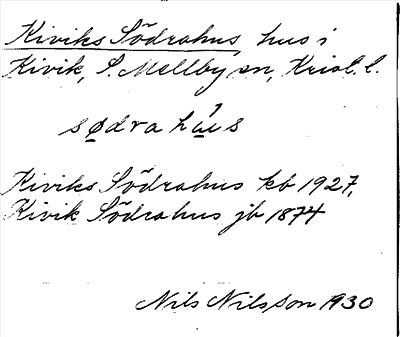 Kiviks Södrahus, hus i
Kivik, S. Mellby sn, Krist. l.
södrahu̇s
Kiviks Södrahus kb 1927,
Kivik Södrahus jb 1874
Nils Nilsson 1930